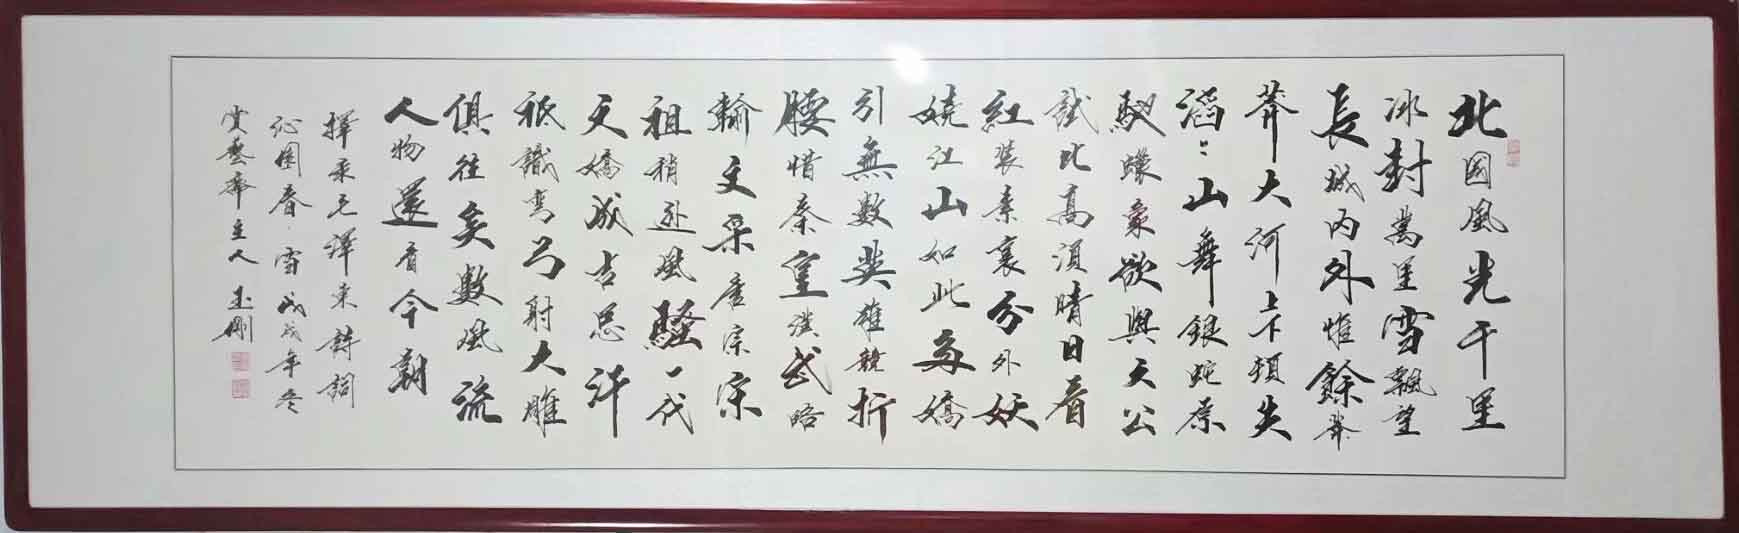 北国風光千里
冰封萬里雪飄望
長城内外惟餘莽
莽大河上下頓失
滔〻山舞銀蛇原
馳蠟象欲與天公
試比高須晴日看
紅裝素裹分外妖
嬈江山如此多嬌
引無數英雄競折
腰惜秦皇漢武略
輸文采唐宗宋
祖稍遜風騷一代
天嬌成吉思汗
祇識彎弓射大雕
俱往矣數風流
人物還看今朝
擇录毛澤東詩詞
沁園春·雪戊戌年冬
齋主人玉剛